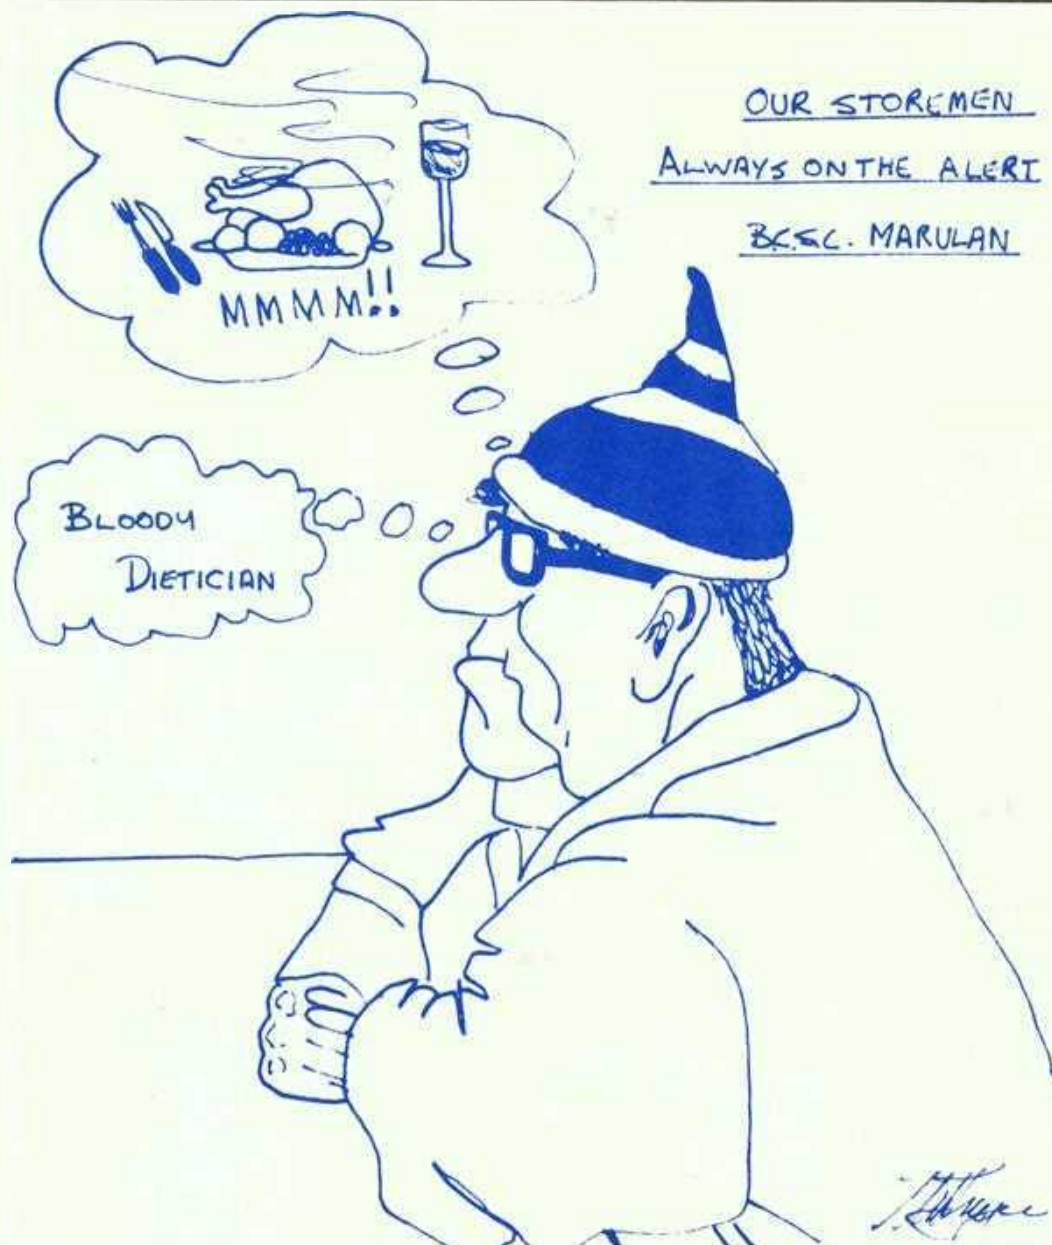 OUR STOREMEN
ALWAYS ON THE ALERT
B.C.S.C. MARULAN
MMMM!!
BLOODY
DIETICIAN